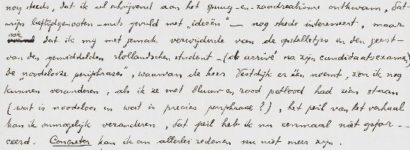 nog steeds, dat ik al schrijvend aan het spuug- en zandrealisme ontkwam, dat
mijn tijdgenoten – mits gevuld met "ideeën" – nog steeds interessant, maar
ook dat ik mij met gemak verwijderde van de spelletjes en den geest
van den gemiddelden Hollandschen student – (de arrivé na zijn candidaatsexamen)
de noodelooze periphrases, waarvan de heer Vestdijk er één noemt, zou ik nog
kunnen veranderen, als ik ze met blauw en rood potlood had zien staan
(wat is noodeloos en wat is precies periphrase?), het peil van het verhaal
kan ik onmogelijk veranderen, dat peil heb ik nu eenmaal niet gefor-
ceerd. Concreter kan ik om allerlei redenen nu niet meer zijn.